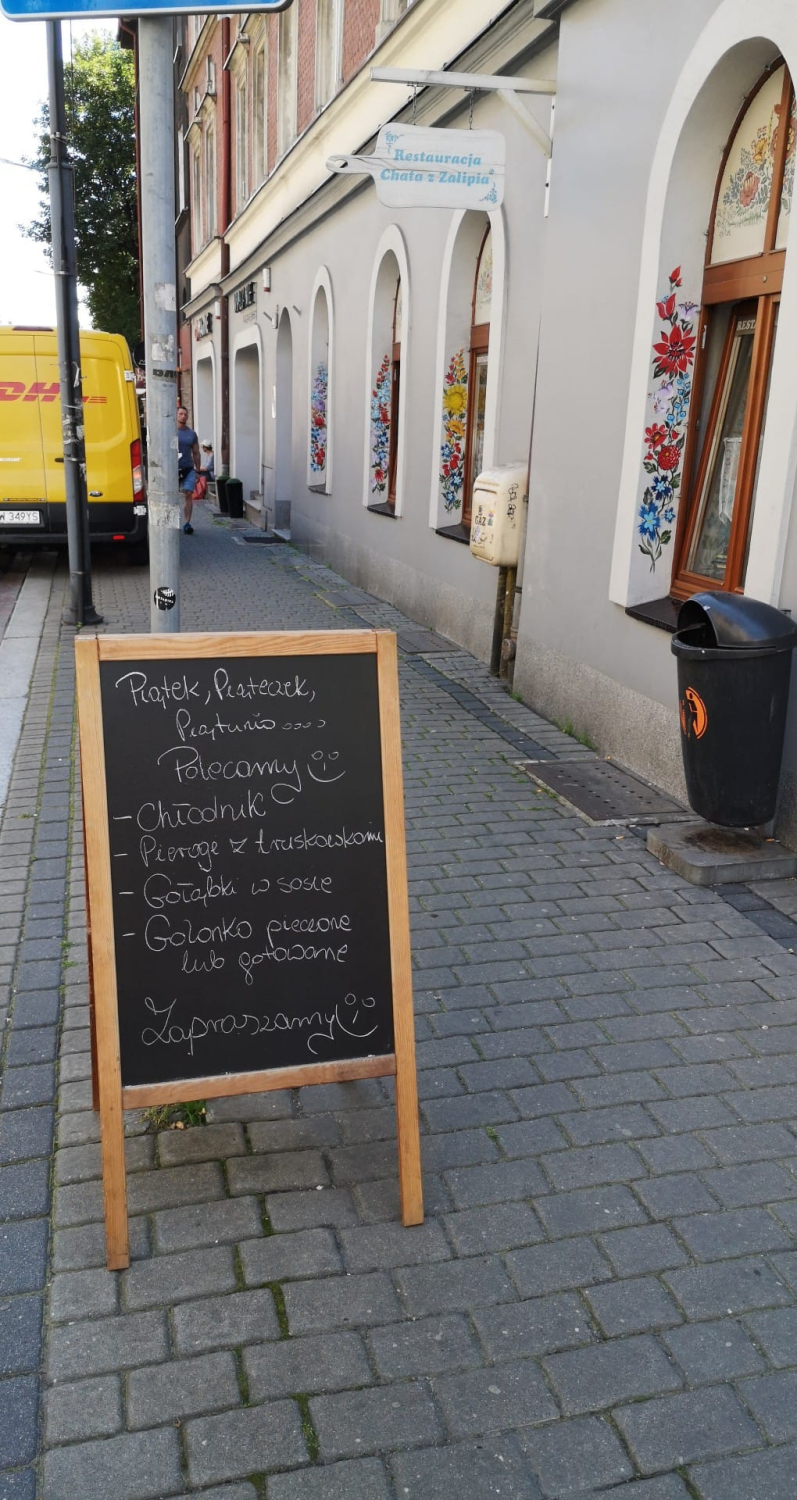 Restauracja
Chata z Zalipia
DHL
W 349YS
GAZ
REST
Piątek, Piąteczek,
Piątunio....
Polecamy
- Chłodnik
- Pierogi z truskawkami
- Gołąbki w sosie
- Golonko pieczone
lub gotowane
Zapraszamy